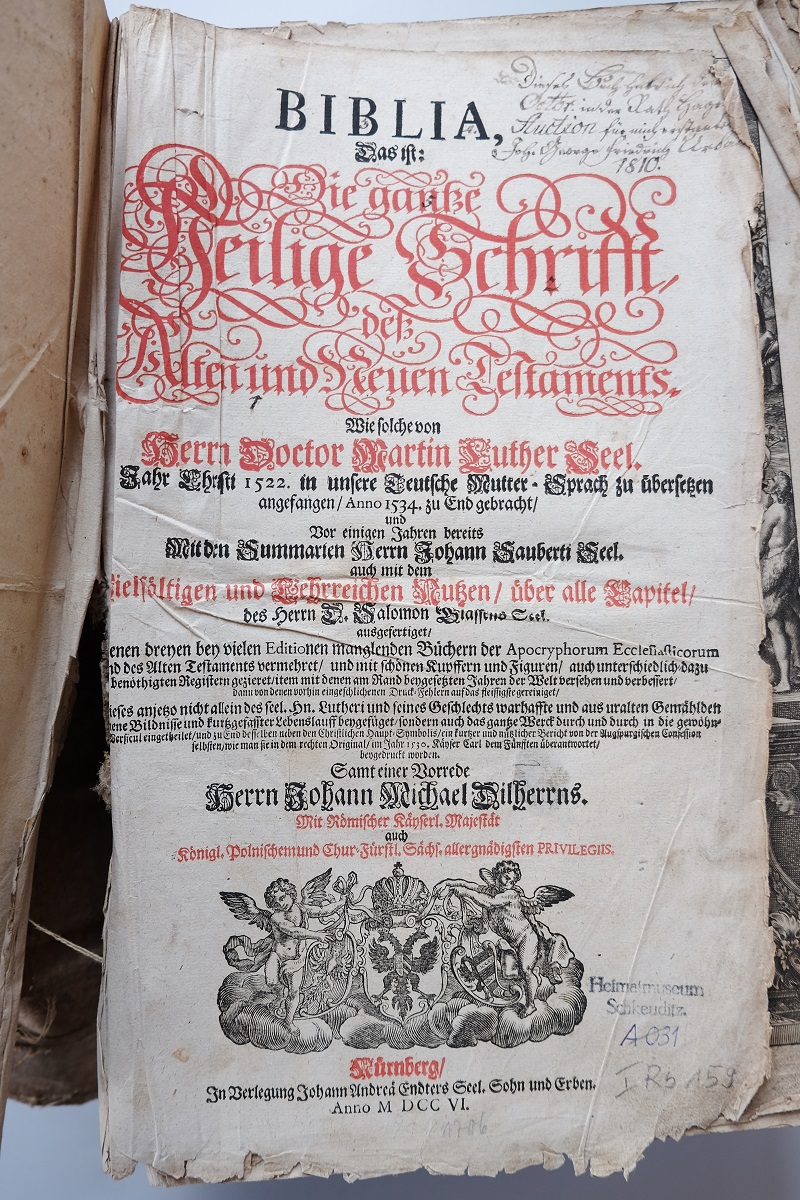 BIBLIA,
Das ist:
Die gantze
Heilige Schrifft,
deß
Alten und Neuen Testaments.
Wie solche von
Herrn Doctor Martin Luther Seel.
Jahr Christi 1522. in unsere Teutsche Mutter-Sprach zu übersetzen
angefangen/ Anno 1534. zu End gebracht/
und
Vor einigen Jahren bereits
Mit den Summarien Herrn Johann Sauberti Seel.
auch mit dem
Vielfältigen und Lehrreichen Nutzen/ über alle Capitel/
des Herrn D. Salomon Glassens Seel.
ausgefertiget/
enen dreyen bey vielen Editionen manglenden Büchern der Apocryphorum Ecclesiasticorum
nd des Alten Testaments vermehret/ und mit schönen Kupffern und Figuren/ auch unterschiedlich-dazu
benöthigten Registern gezieret/ item mit denen am Rand beygesetzten Jahren der Welt versehen und verbessert/
dann von denen vorhin eingeschlichenen Druck-Fehlern auf das fleissigste gereiniget/
ieses anjetzo nicht allein des seel. Hn. Lutheri und seines Geschlechts warhaffte und aus uralten Gemählden
ene Bildnisse und kurtzgefasster Lebenslauff beygefüget/ sondern auch das gantze Werck durch und durch in die gewöhn-
Versicul eingetheilet/ und zu End desselben neben den Christlichen Haupt-Symbolis/ ein kurtzer und nützlicher Bericht von der Augspurgischen Confession
selbsten/ wie man sie in dem rechten Original/ im Jahr 1530. Käyser Carl dem Fünfften überantwortet/
beygedruckt worden.
Samt einer Vorrede
Herrn Johann Michael Dilherrns.
Mit Römischer Käyserl. Majestät
auch
Königl. Polnischem und Chur-Fürstl. Sächs. allergnädigsten PRIVILEGIIS.
Nürnberg/
In Verlegung Johann Andreä Endters Seel. Sohn und Erben.
Anno M DCC VI.
1706
Dieses Buch
Auction
Joh. George Friedrich
1810.
Heimatmuseum
Schkeuditz
A 031
I Rb 159